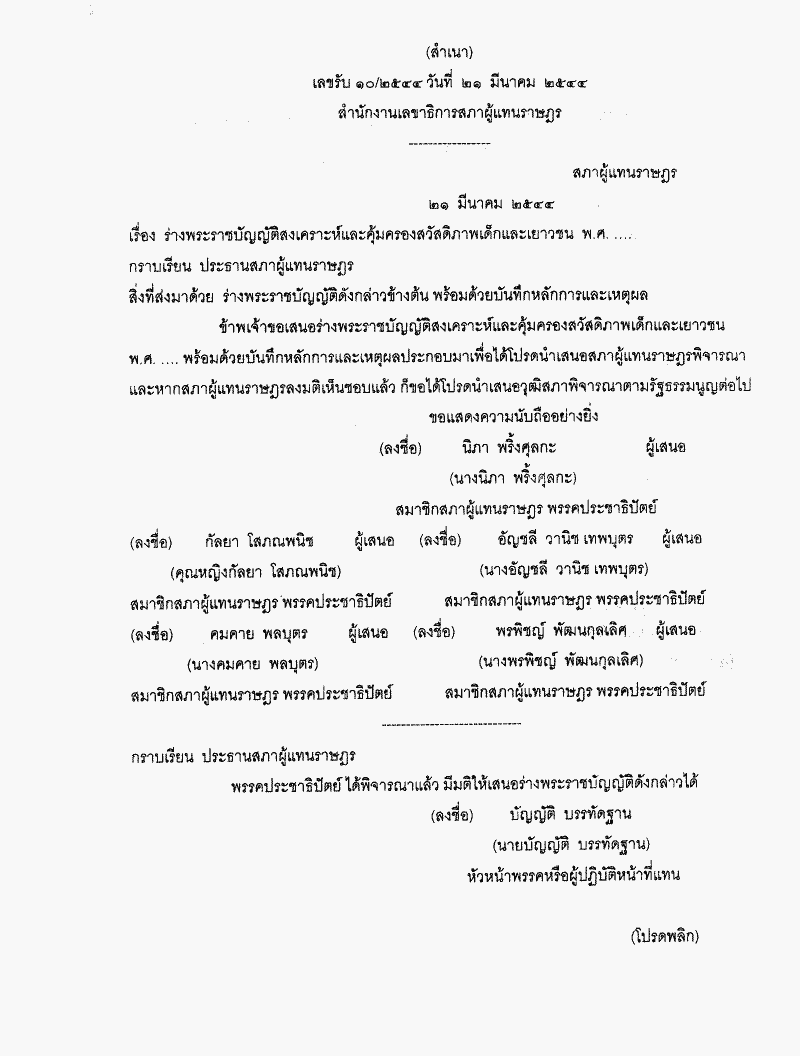 (สำเนา)
เลขรับ ๑๐/๒๕๔๔ วันที่ ๒๑ มีนาคม ๒๕๔๔
สำนักงานเลขาธิการสภาผู้แทนราษฎร
-----------------
สภาผู้แทนราษฎร
๒๑ มีนาคม ๒๕๔๔
เรื่อง ร่างพระราชบัญญัติสงเคราะห์และคุ้มครองสวัสดิภาพเด็กและเยาวชน พ.ศ. ....
กราบเรียน ประธานสภาผู้แทนราษฎร
สิ่งที่ส่งมาด้วย ร่างพระราชบัญญัติดังกล่าวข้างต้น พร้อมด้วยบันทึกหลักการและเหตุผล
ข้าพเจ้าขอเสนอร่างพระราชบัญญัติสงเคราะห์และคุ้มครองสวัสดิภาพเด็กและเยาวชน
พ.ศ. .... พร้อมด้วยบันทึกหลักการและเหตุผลประกอบมาเพื่อได้โปรดนำเสนอสภาผู้แทนราษฎรพิจารณา
และหากสภาผู้แทนราษฎรลงมติเห็นชอบแล้ว ก็ขอได้โปรดนำเสนอวุฒิสภาพิจารณาตามรัฐธรรมนูญต่อไป
ขอแสดงความนับถืออย่างยิ่ง
(ลงชื่อ) นิภา พริ้งศุลกะ ผู้เสนอ
(นางนิภา พริ้งศุลกะ)
สมาชิกสภาผู้แทนราษฎร พรรคประชาธิปัตย์
(ลงชื่อ) กัลยา โสภณพนิช ผู้เสนอ (ลงชื่อ) อัญชลี วานิช เทพบุตร ผู้เสนอ
(คุณหญิงกัลยา โสภณพนิช) (นางอัญชลี วานิช เทพบุตร)
สมาชิกสภาผู้แทนราษฎร พรรคประชาธิปัตย์ สมาชิกสภาผู้แทนราษฎร พรรคประชาธิปัตย์
(ลงชื่อ) คมคาย พลบุตร ผู้เสนอ (ลงชื่อ) พรพิชญ์ พัฒนกุลเลิศ ผู้เสนอ
(นางคมคาย พลบุตร) (นางพรพิชญ์ พัฒนกุลเลิศ)
สมาชิกสภาผู้แทนราษฎร พรรคประชาธิปัตย์ สมาชิกสภาผู้แทนราษฎร พรรคประชาธิปัตย์
-----------------------------
กราบเรียน ประธานสภาผู้แทนราษฎร
พรรคประชาธิปัตย์ ได้พิจารณาแล้ว มีมติให้เสนอร่างพระราชบัญญัติดังกล่าวได้
(ลงชื่อ) บัญญัติ บรรทัดฐาน
(นายบัญญัติ บรรทัดฐาน)
หัวหน้าพรรคหรือผู้ปฏิบัติหน้าที่แทน
(โปรดพลิก)